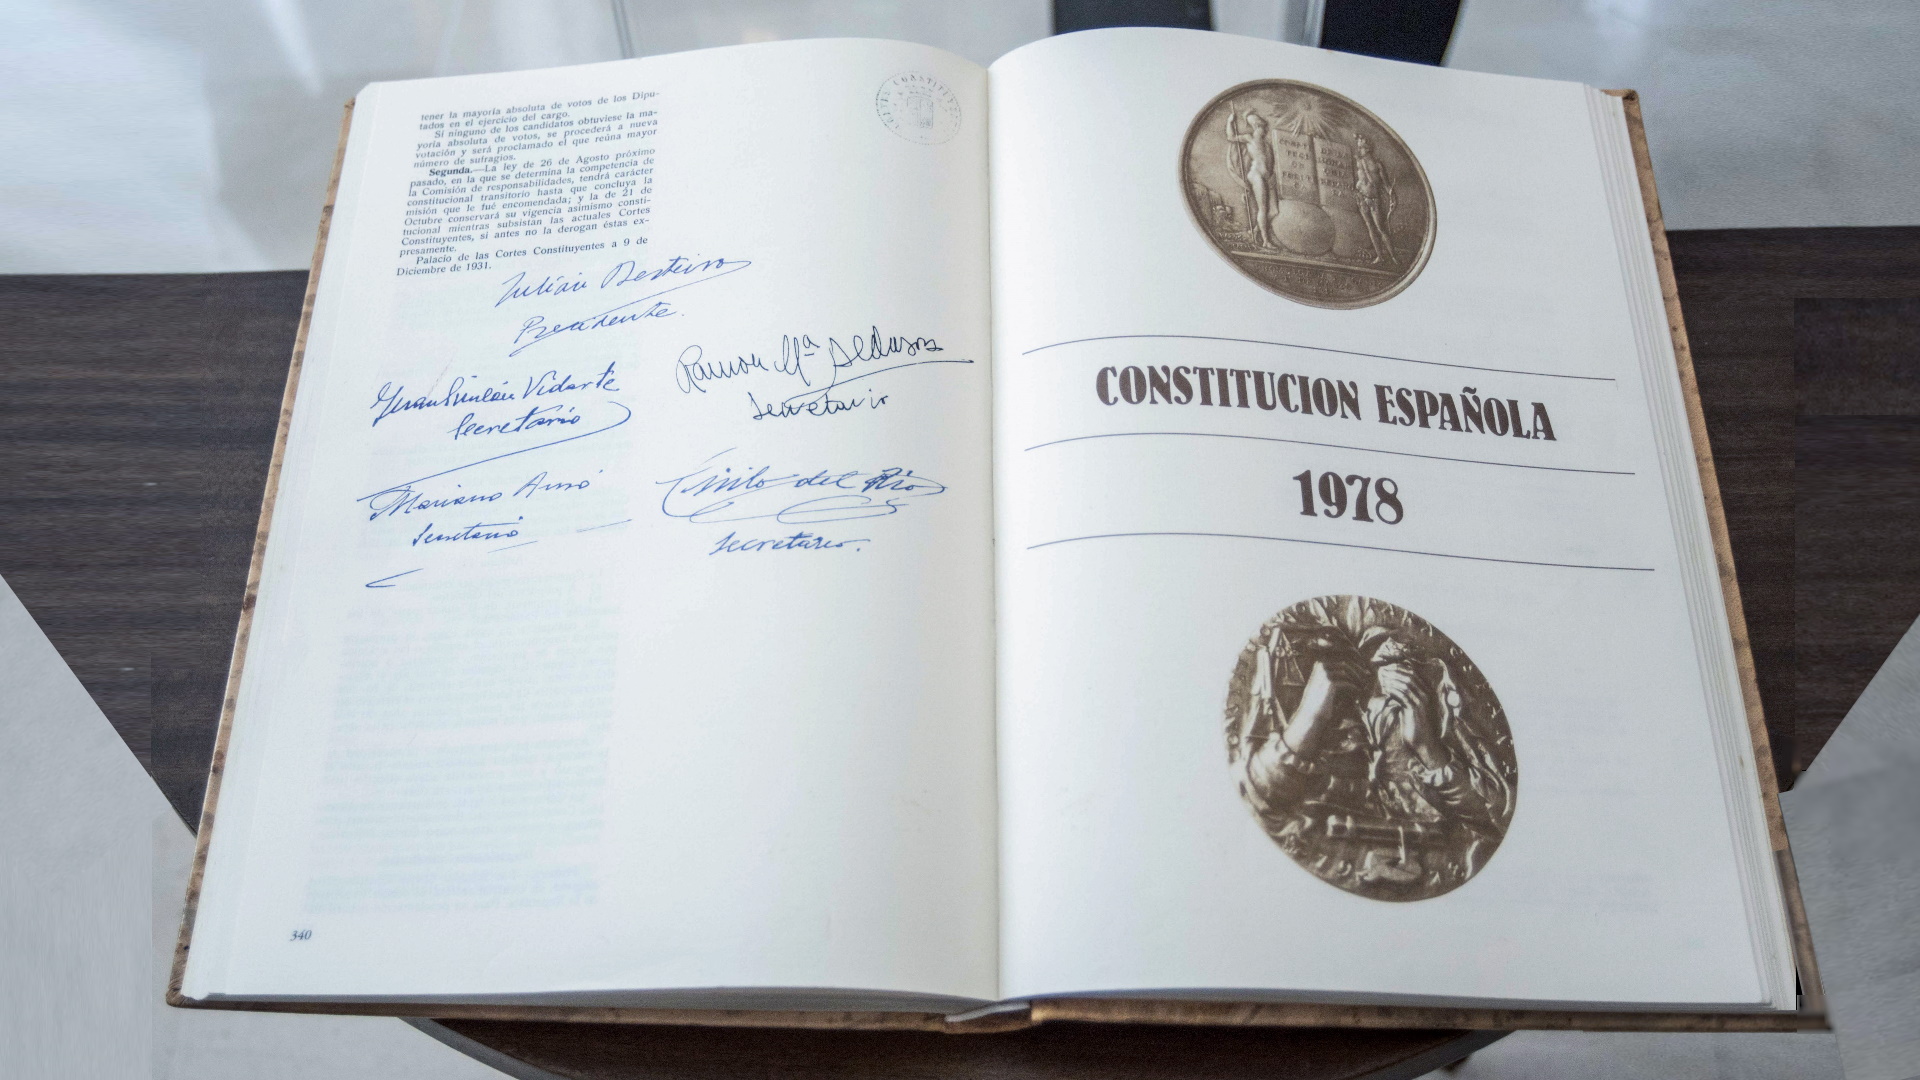 tener la mayoría absoluta de votos de los Dipu-
tados en el ejercicio del cargo.
Si ninguno de los candidatos obtuviese la ma-
yoría absoluta de votos, se procederá a nueva
votación y será proclamado el que reúna mayor
número de sufragios.
Segunda.—La ley de 26 de Agosto próximo
pasado, en la que se determina la competencia de
la Comisión de responsabilidades, tendrá carácter
constitucional transitorio hasta que concluya la
misión que le fué encomendada; y la de 21 de
Octubre conservará su vigencia asimismo consti-
tucional mientras subsistan las actuales Cortes
Constituyentes, si antes no la derogan éstas ex-
presamente.
Palacio de las Cortes Constituyentes a 9 de
Diciembre de 1931.
Julián Besteiro
Presidente.
Juan Simeón Vidarte
Secretario
Ramon Mª Aldasoro
Secretario
Mariano Ansó
Secretario
Emilio del Rio
Secretario.
340
CONSTITUCION ESPAÑOLA
1978